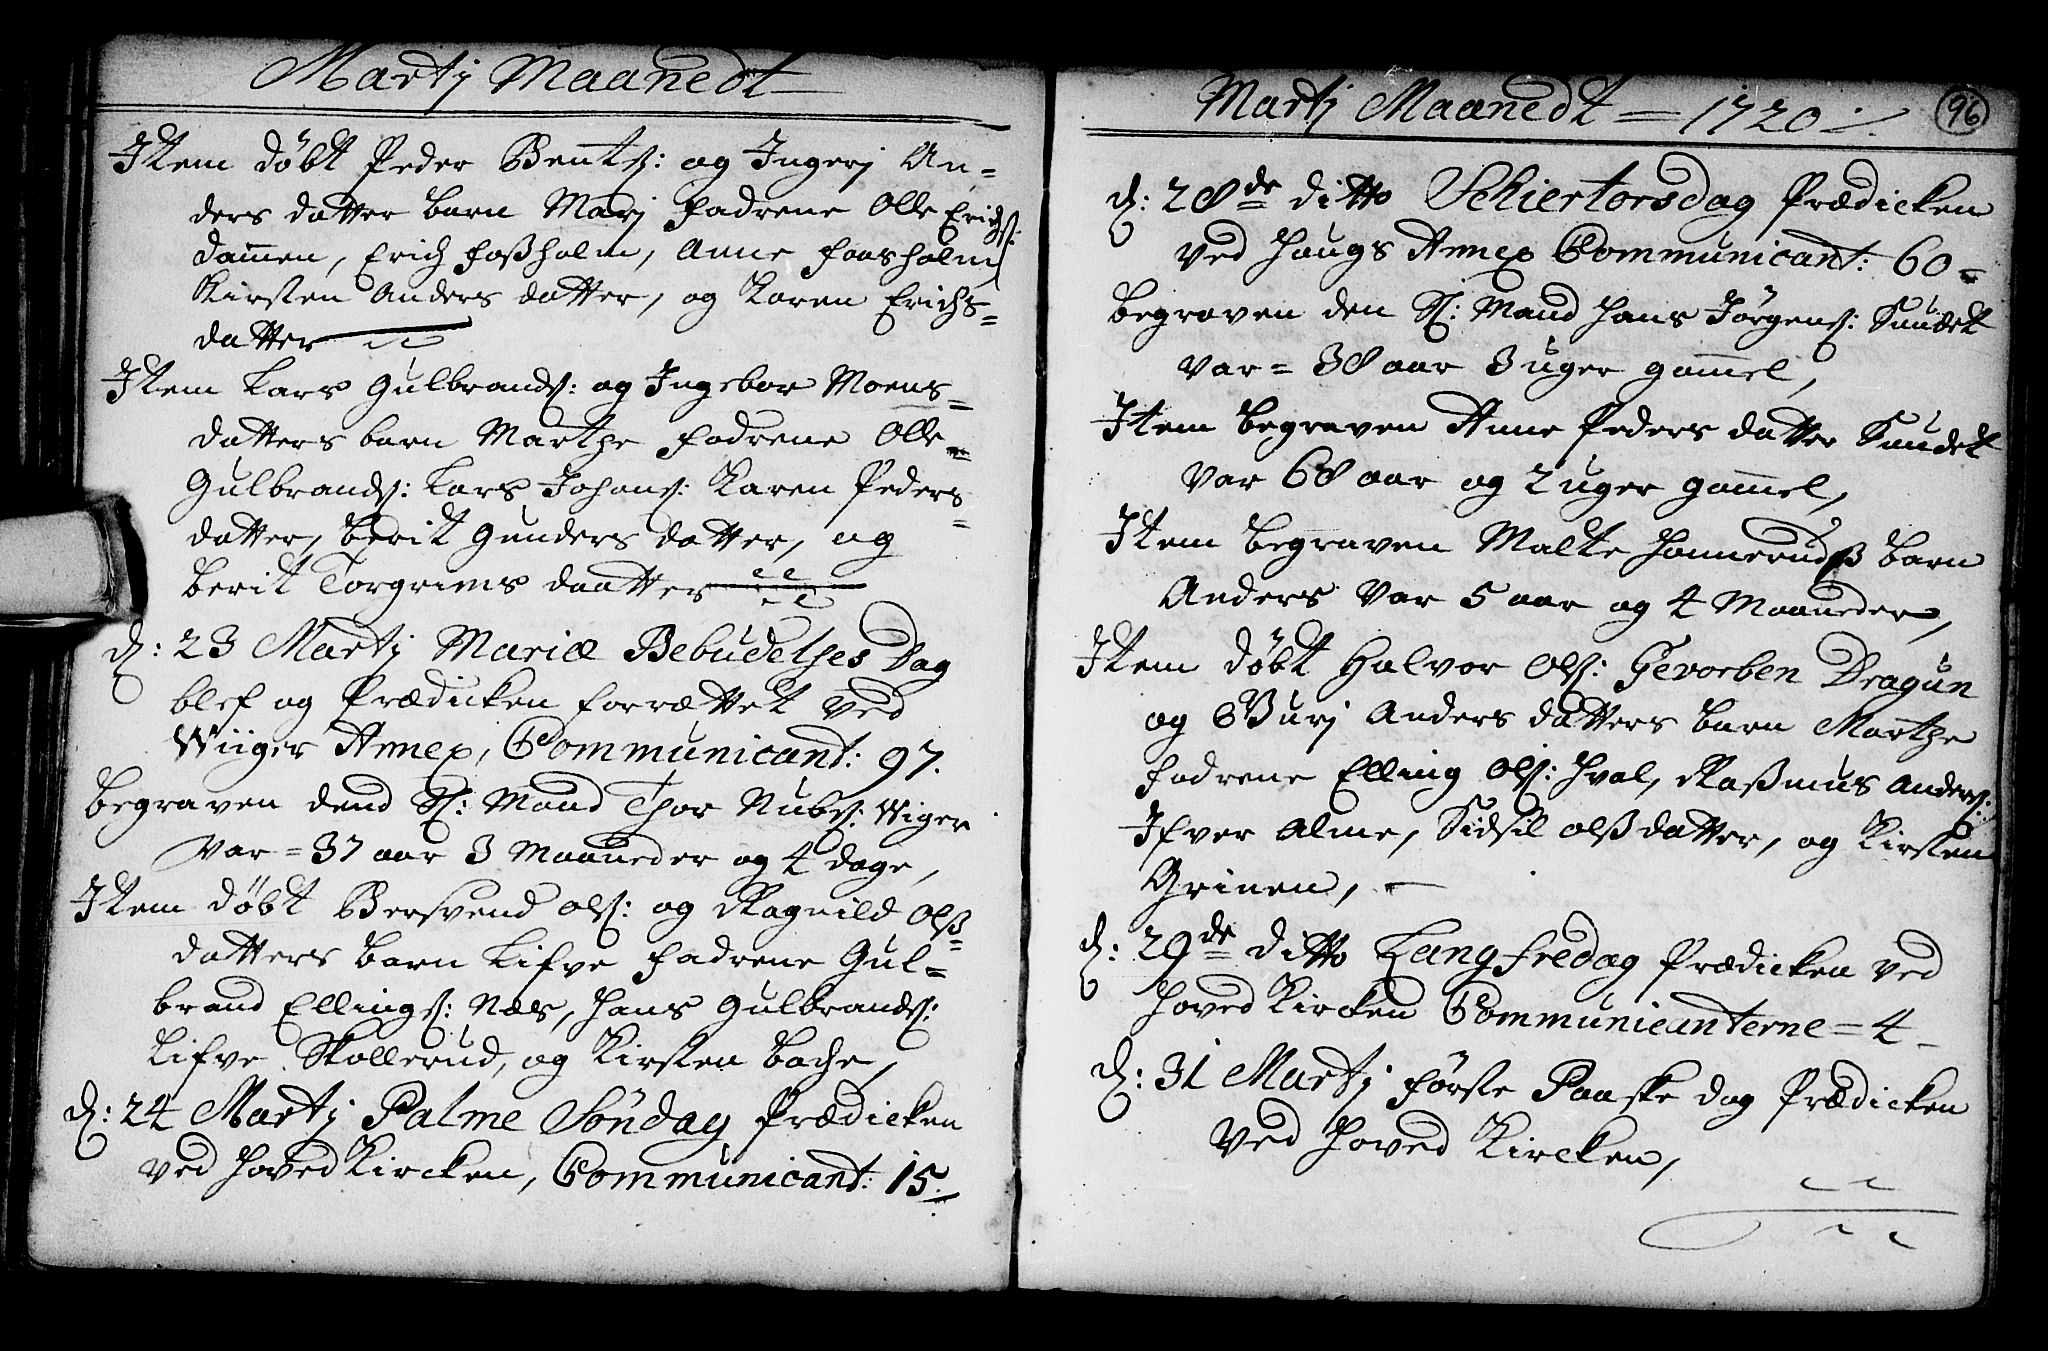 Martj Maanedt
Item döbt Peder Bentß: og Ingerj An=
ders datter barn Marj Fadrene Olle Erichß:
Dammen, Erich Foßholm, Anne Foosholm,
Kirsten Anders datter, og Karen Erichs=
datter
Item Lars Gulbrandß: og Ingebor Moens=
datters barn Marthe Fadrene Olle
Gulbrandß: Lars Johanß: Karen Peders=
datter, Berit Gunders datter, og
Berit Torgrims daatter
D: 23 Martj Mariæ Bebudelses Dag
blef og Prædicken forrættet ved
Wiiger Annex, Communicant: 97.
Begraven dend Sl: Mand Thor Nubß: Wiger
var = 37 aar 3 Maaneder og 4 dage,
Item döbt Bersvend Olß: og Ragnild Olß=
datters barn Lifve Fadrene Gul=
brand Ellingß: Næs, Hans Gulbrandß:
Lifve Skollerud, og Kirsten Bache,
D: 24 Martj Palme Söndag Prædicken
ved Hoved Kircken, Communicant: 15.
Martj Maanedt = 1720
96
D: 28de ditto Schiertorsdag Prædicken
ved Hougs Annex Communicant: 60=
Begraven den Sl: Mand Hans Jörgenß: Sundet
var = 38 aar 3 uger gammel,
Item Begraven Anne Peders datter Sundet
var 68 aar og 2 uger gammel,
Item Begraven Malte Honnerudß barn
Anders var 5 aar og 4 Maaneder,
Item döbt Halvor Olß: Gevorben Dragun
og Gurj Anders datters barn Marthe
Fadrene Elling Olß: Hval, Raßmus Anderß:
Ifver Alme, Sidsil Olß datter, og Kirsten
Grinen,
D: 29de ditto Langfredag Prædicken ved
Hoved Kircken Communicanterne = 4
D: 31 Martj förste Paaske dag Prædicken
ved Hoved Kircken,